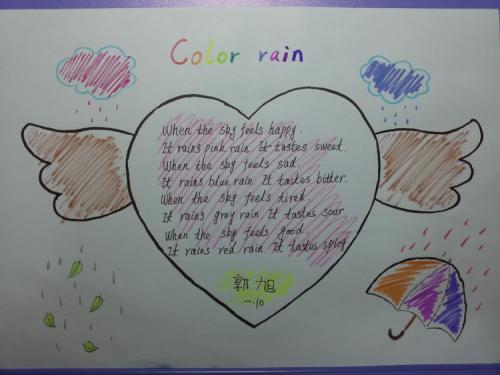 Color rain
When the sky feels happy.
It rains pink rain. It tastes sweet.
When the sky feels sad.
It rains blue rain. It tastes bitter.
When the sky feels tired.
It rains grey rain. It tastes sour.
When the sky feels good.
It rains red rain. It tastes spicy
郭旭
一.10